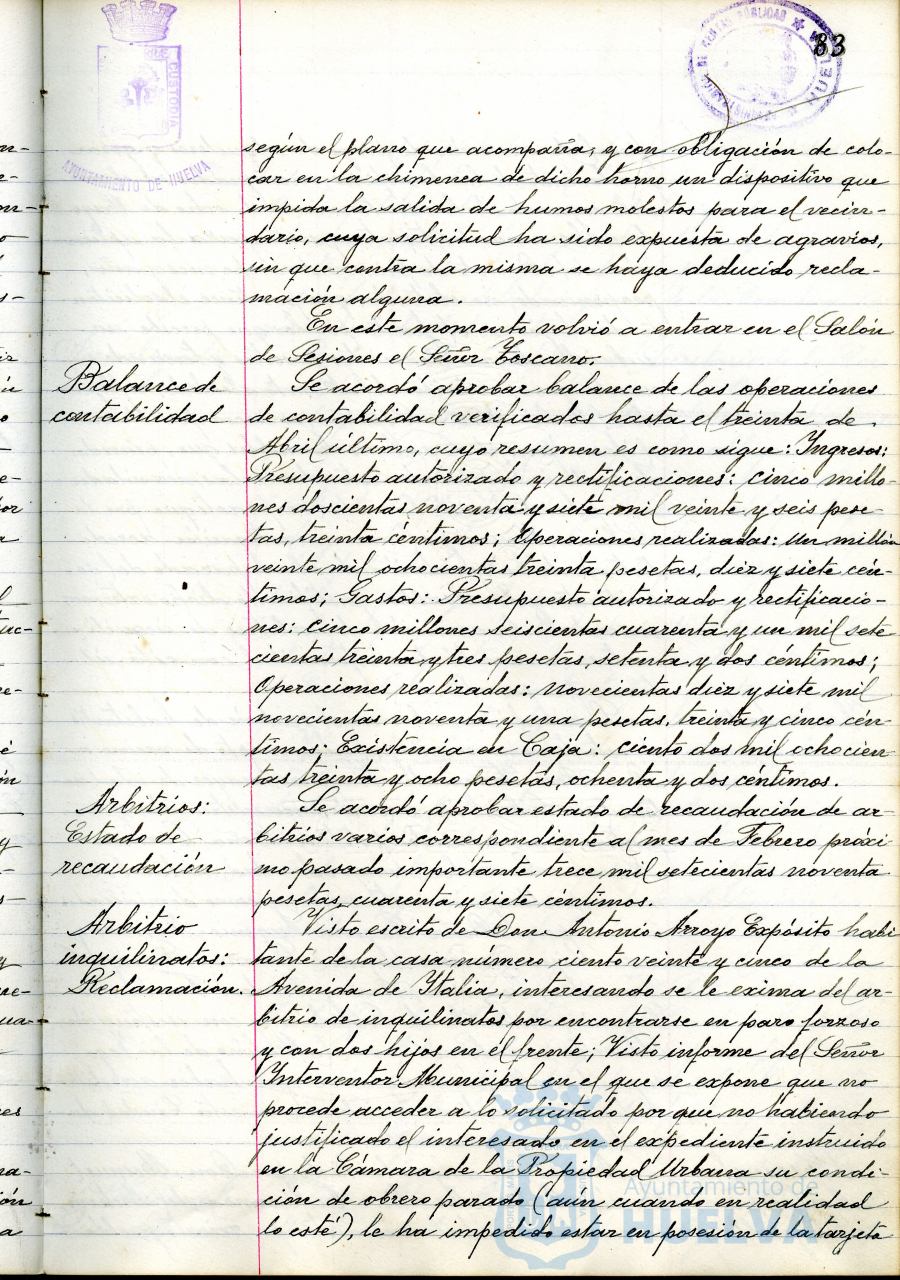 83
AYUNTAMIENTO DE HUELVA
según el plano que acompaña, y con obligación de colo-
car en la chimenea de dicho horno un dispositivo que
impida la salida de humos molestos para el vecin-
dario, cuya solicitud ha sido expuesta de agravios,
sin que contra la misma se haya deducido recla-
mación alguna.
En este momento volvió a entrar en el Salón
de Sesiones el Señor Toscano.
Balance de
contabilidad
Se acordó aprobar balance de las operaciones
de contabilidad verificados hasta el treinta de
Abril último, cuyo resumen es como sigue: Ingresos:
Presupuesto autorizado y rectificaciones: cinco millo-
nes doscientas noventa y siete mil veinte y seis pese-
tas, treinta céntimos; Operaciones realizadas: un millón
veinte mil ochocientas treinta pesetas, diez y siete cén-
timos; Gastos: Presupuesto autorizado y rectificacio-
nes: cinco millones seiscientas cuarenta y un mil sete
cientas treinta y tres pesetas, setenta y dos céntimos;
Operaciones realizadas: novecientas diez y siete mil
novecientas noventa y una pesetas, treinta y cinco cén
timos; Existencia en Caja: ciento dos mil ochocien
tas treinta y ocho pesetas, ochenta y dos céntimos.
Arbitrios:
Estado de
recaudación
Se acordó aprobar estado de recaudación de ar-
bitrios varios correspondiente al mes de Febrero próxi
mo pasado importante trece mil setecientas noventa
pesetas, cuarenta y siete céntimos.
Arbitrio
inquilinatos:
Reclamación.
Visto escrito de Don Antonio Arroyo Expósito habi
tante de la casa número ciento veinte y cinco de la
Avenida de Italia, interesando se le exima del ar-
bitrio de inquilinatos por encontrarse en paro forzoso
y con dos hijos en el frente; Visto informe del Señor
Interventor Municipal en el que se expone que no
procede acceder a lo solicitado por que no habiendo
justificado el interesado en el expediente instruido
en la Cámara de la Propiedad Urbana su condi-
ción de obrero parado (aún cuando en realidad
lo esté), le ha impedido estar en posesión de la tarjeta
Ayuntamiento de
HUELVA